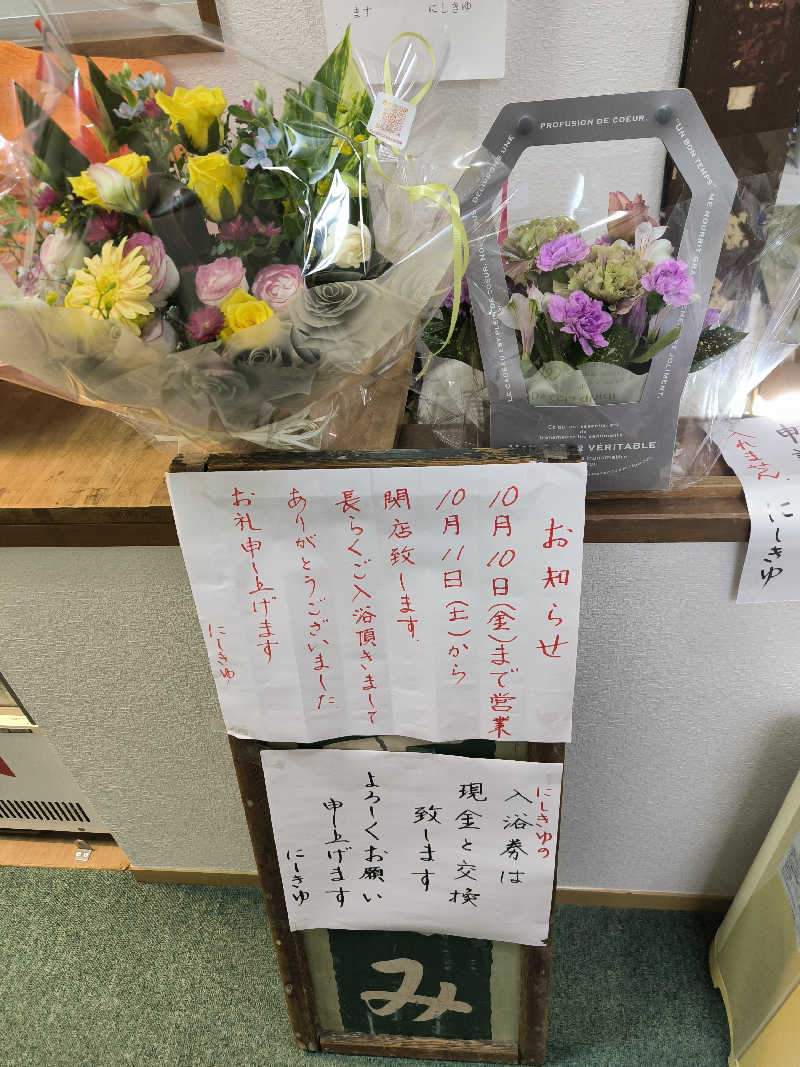 ます
にしきゆ
PROFUSION DE COEUR.
"UN BON TEMPS"
お知らせ
10月10日(金)まで営業
10月11日(土)から
閉店致します.
長らくご入浴頂きまして
ありがとうございました.
お礼申し上げます
にしきゆ
にしきゆの
入浴券は
現金と交換
致します
よろしくお願い
申し上げます
にしきゆ
み
入れません.
にしきゆ